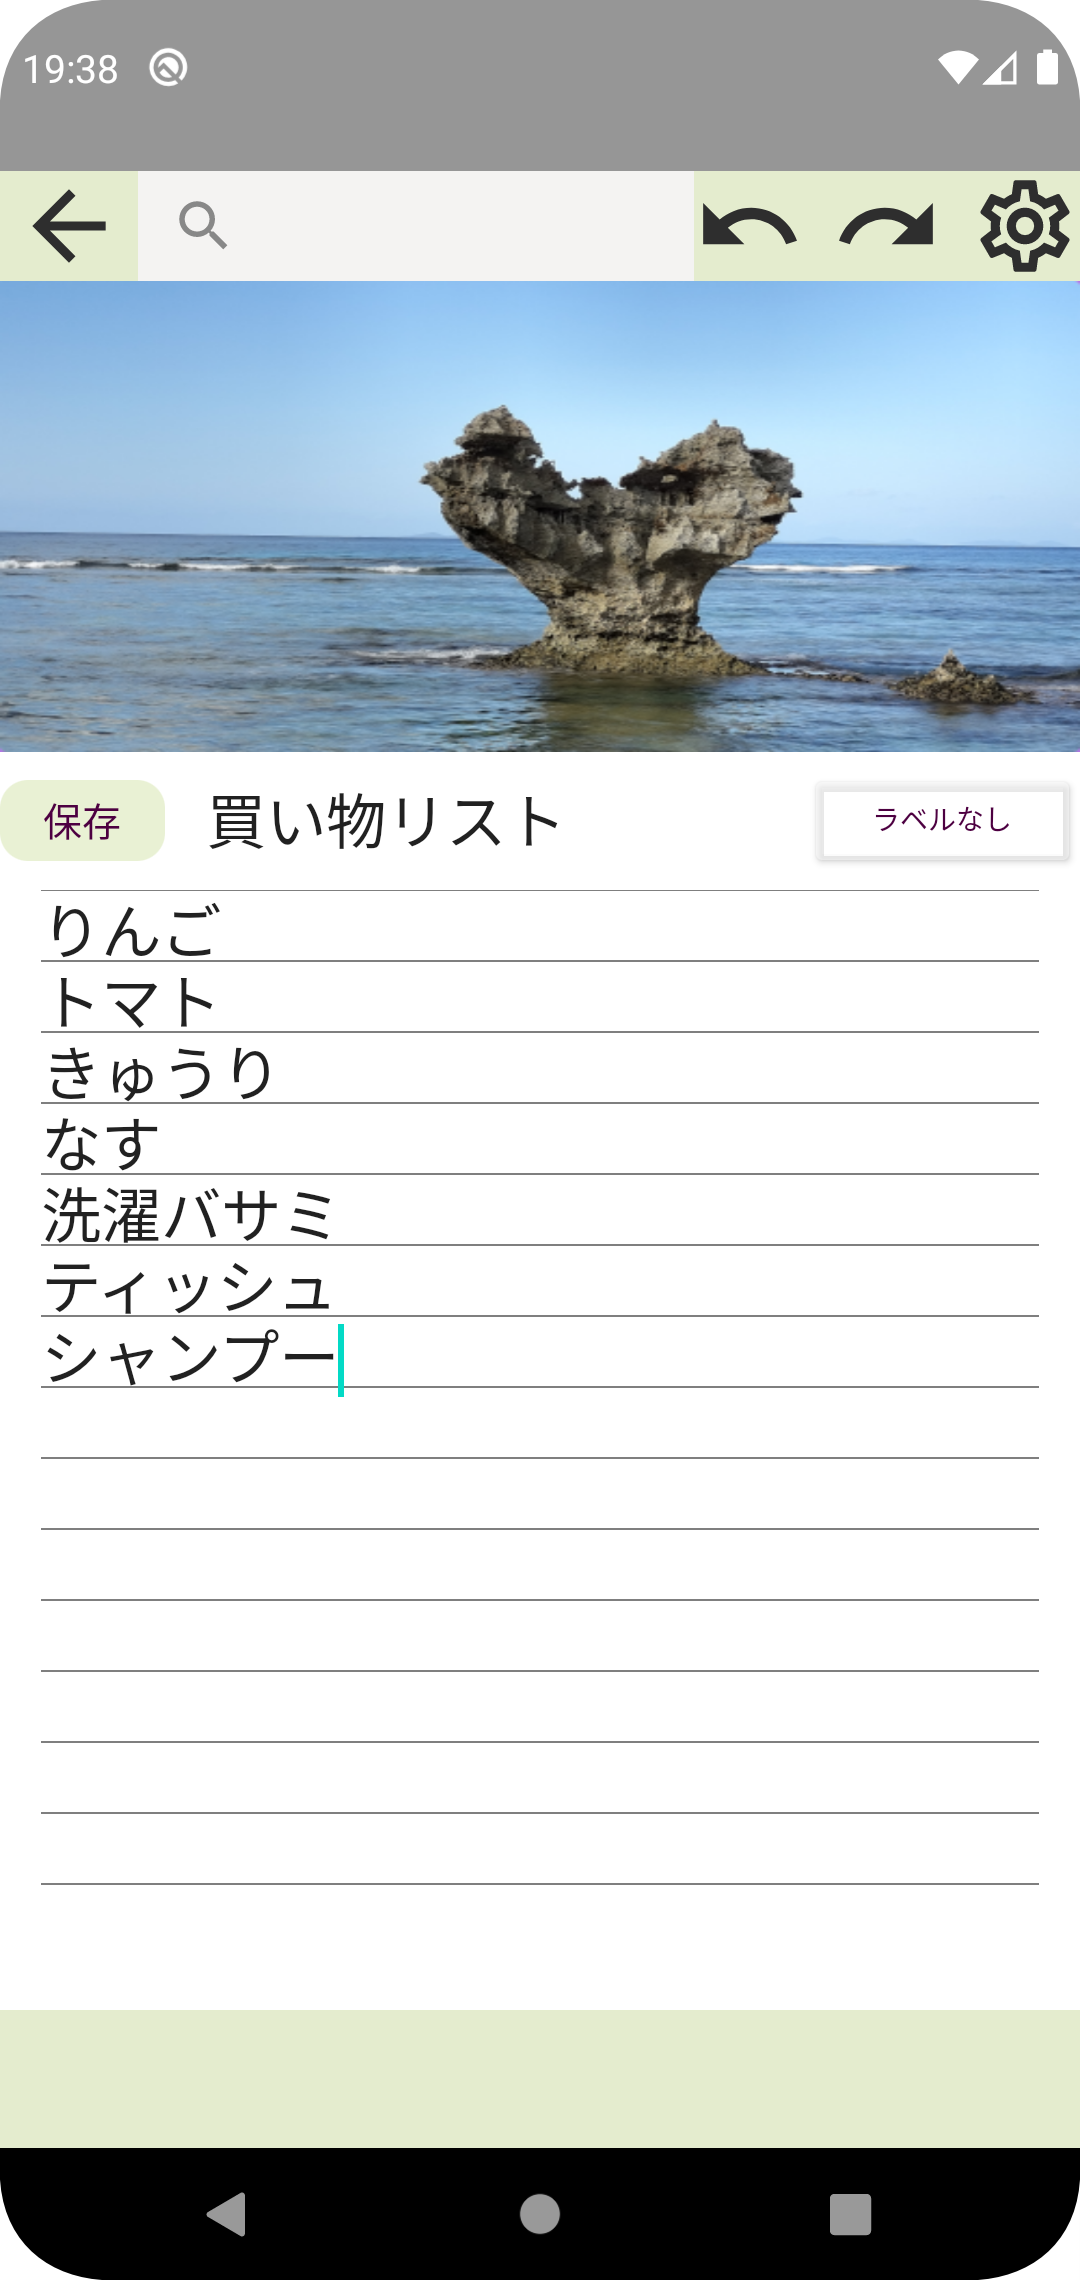 19:38
保存
買い物リスト
ラベルなし
りんご
トマト
きゅうり
なす
洗濯バサミ
ティッシュ
シャンプー